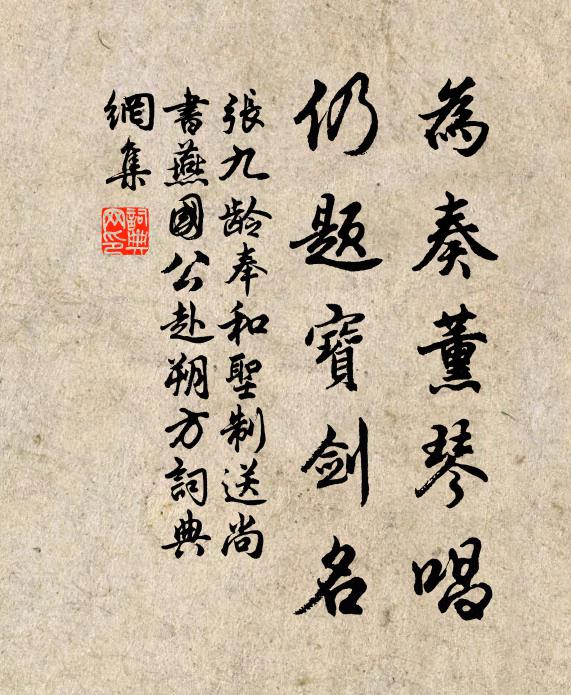 為奏薰琴唱
仍题寶剑名
張九龄奉和聖制送尚
書燕國公赴朔方詞典
網集
詞典
网印